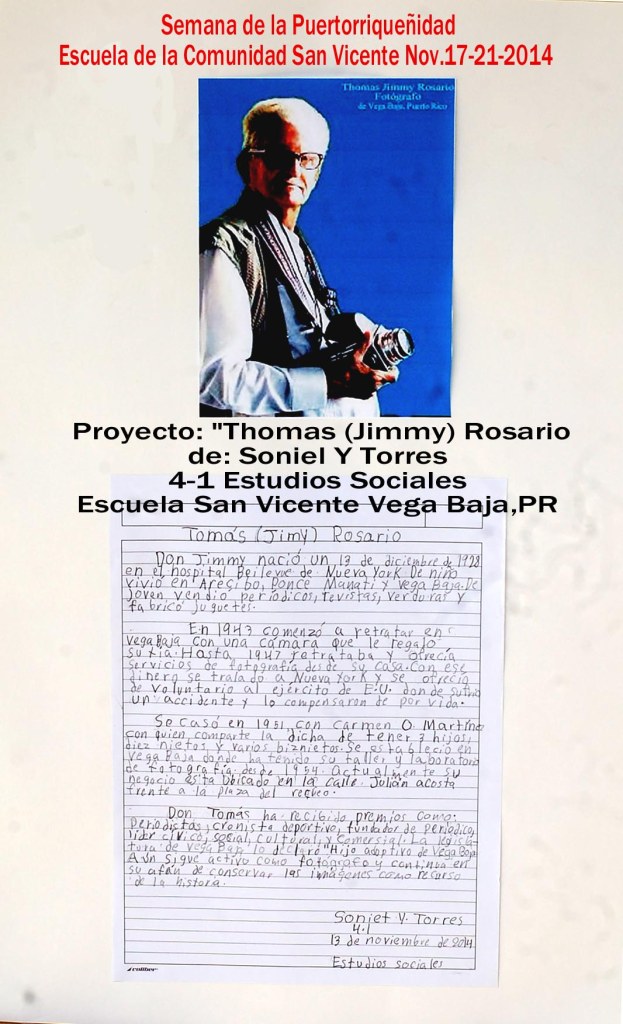 Semana de la Puertorriqueñidad
Escuela de la Comunidad San Vicente Nov.17-21-2014
Thomas Jimmy Rosario
Fotógrafo
de Vega Baja, Puerto Rico
Proyecto: "Thomas (Jimmy) Rosario
de: Soniel Y Torres
4-1 Estudios Sociales
Escuela San Vicente Vega Baja,PR
Tomás (Jimy) Rosario
Don Jimmy nació un 13 de diciembre de 1928
en el hospital Bellevue de Nueva York. De niño
vivió en Arecibo, Ponce Manatí y Vega Baja. De
joven vendio periodicos, revistas, verduras y
fabricó juguetes.
En 1943 comenzó a retratar en
Vega Baja con una cámara que le regaló
su tía. Hasta 1947 retrataba y ofrecía
servicios de fotografía desde su casa. Con ese
dinero se traladó a Nueva York y se ofreció
de voluntario al ejército de E.U. donde sufrió
un accidente y lo compensaron de por vida.
Se casó en 1951 con Carmen O. Martíne
con quien comparte la dicha de tener 3 hijos,
diez nietos y varios biznietos. Se estableció en
Vega Baja donde ha tenido su taller y laboratorio
de fotografía desde 1954. Actualmente su
negocio esta Ubicado en la calle Julián acosta
frente a la plaza del recreo.
Don Tomás ha recibido premios como:
Periodistas, cronista deportivo, fundador de periodico,
lider cívico, social, cultural, y comersial. La legisla-
tura de Vega Baja lo declaró "Hijo adoptivo de Vega Baja
Aún sigue activo como fotografo y continua en
su afán de conservar las imágenes como recurso
de la histora.
Soniel Y. Torres
4-1
13 de noviembre de 2014
Estudios sociales
caliber